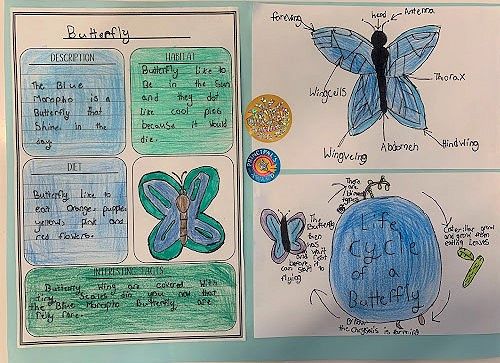 Butterfly
DESCRIPTION
The Blue
Moropho is a
Butterfly that
Shine in the
day.
HABITAT
Butterfly like to
Be in the Sun
and they dot
like cool plas
because it would
die.
DIET
Butterfly like to
eat Orange, pupple
yellows, Pink and
red flowers.
INTERESTING FACTS
Butterfly wing are covered with
tiny Scales did you now that
the Blue Moropho Butterfly are
relly rare.
forewing
head
Antenna
Wingcells
Thorax
Wingveing
Abdomen
Hindwing
There are
The Butterfly
then
has
to wait
and rest
before it
can start to
flying
Life
Cycle
of a
Butterfly
Caterpillar grow
and grow when
eating Leaves
the chrysalis is forming